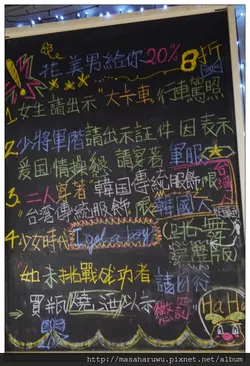 花美男給你20% 8折
1.女生請出示"大卡車"行車駕照
2.少將軍階請出示証件因表示
愛国情操 請穿著軍服
3.二人穿著韓国傳統服飾
"台灣傳統服飾 韓國人
4.少女時代 I got a boy
如未挑戰成功者 請
買瓶燒酒以示
HaHa
http://masaharuwu.pixnet.net/album